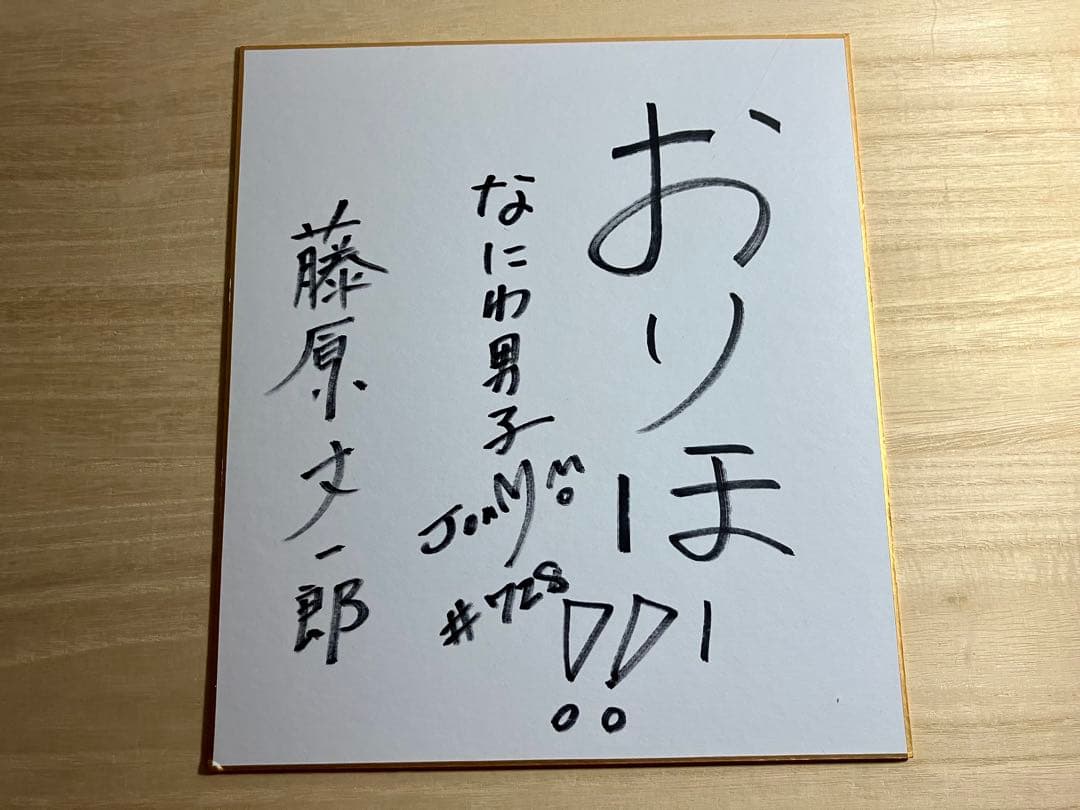 おりほー!!
なにわ男子
#728
藤原丈一郎